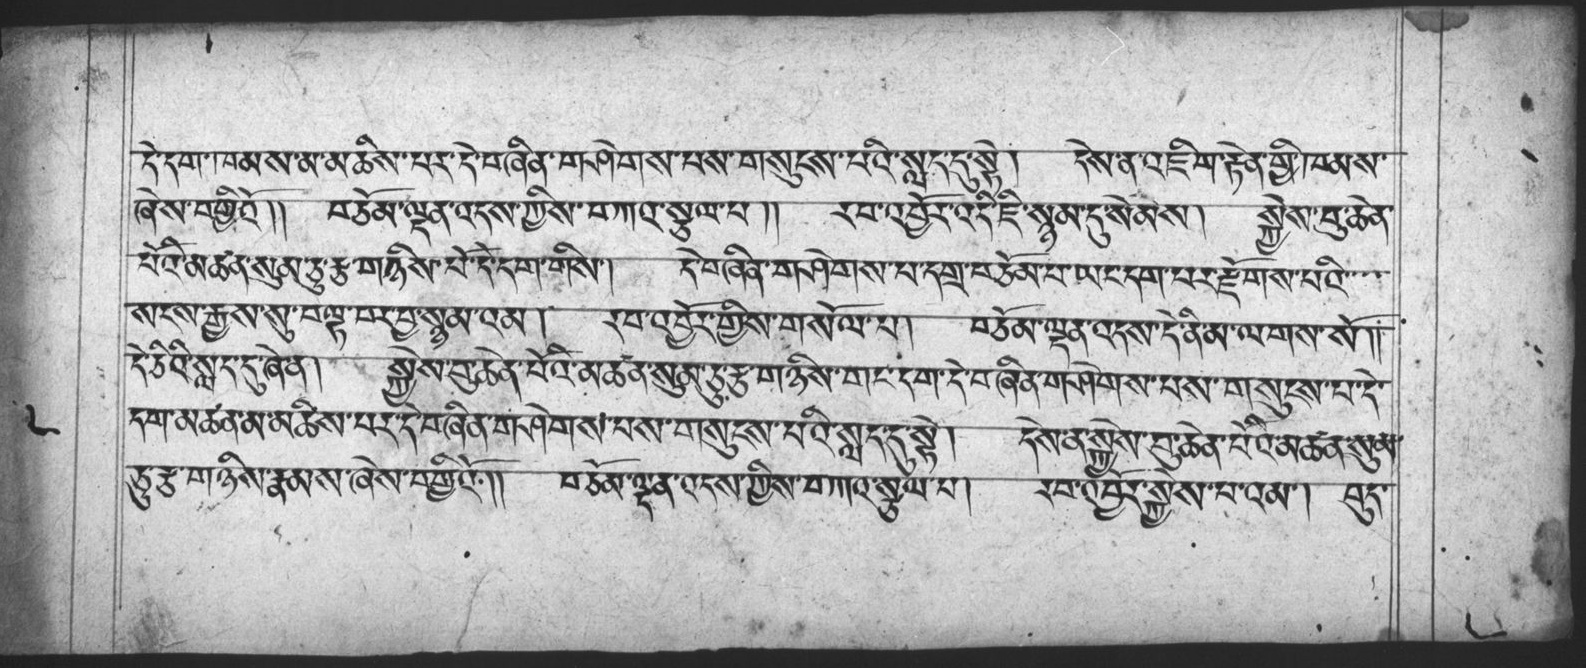 དེ་དག་ཁམས་མ་མཆིས་པར་དེ་བཞིན་གཤེགས་པས་གསུངས་པའི་སླད་དུ་སྟེ། དེས་ན་འཇིག་རྟེན་གྱི་ཁམས་
ཞེས་བགྱིའོ།། བཅོམ་ལྡན་འདས་ཀྱིས་བཀའ་སྩལ་པ།། རབ་འབྱོར་འདི་ཇི་སྙམ་དུ་སེམས། སྐྱེས་བུ་ཆེན་
པོའི་མཚན་སུམ་ཅུ་རྩ་གཉིས་པོ་དེ་དག་གིས། དེ་བཞིན་གཤེགས་པ་དགྲ་བཅོམ་པ་ཡང་དག་པར་རྫོགས་པའི་
སངས་རྒྱས་སུ་བལྟ་བར་བྱ་སྙམ་འམ། རབ་འབྱོར་གྱིས་གསོལ་པ། བཅོམ་ལྡན་འདས་དེ་ནི་མ་ལགས་སོ།།
དེ་ཅིའི་སླད་དུ་ཞེ་ན། སྐྱེས་བུ་ཆེན་པོའི་མཚན་སུམ་ཅུ་རྩ་གཉིས་གང་དག་དེ་བཞིན་གཤེགས་པས་གསུངས་པ་དེ་
དག་མཚན་མ་མཆིས་པར་དེ་བཞིན་གཤེགས་པས་གསུངས་པའི་སླད་དུ་སྟེ། དེས་ན་སྐྱེས་བུ་ཆེན་པོའི་མཚན་སུམ་
ཅུ་རྩ་གཉིས་རྣམས་ཞེས་བགྱིའོ།། བཅོམ་ལྡན་འདས་ཀྱིས་བཀའ་སྩལ་པ། རབ་འབྱོར་སྐྱེས་པ་འམ། བུད་